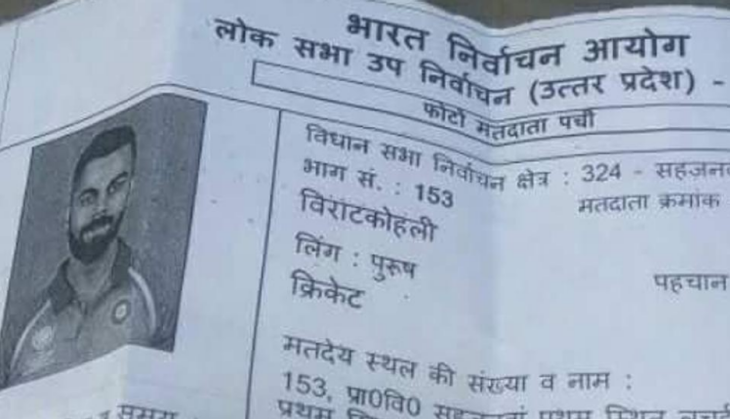 भारत निर्वाचन आयोग
लोक सभा उप निर्वाचन (उत्तर प्रदेश) -
फोटो मतदाता पर्ची
विधान सभा निर्वाचन क्षेत्र : 324 - सहजन
भाग सं. : 153
मतदाता क्रमांक
विराटकोहली
लिंग : पुरूष
पहचान
क्रिकेट
मतदेय स्थल की संख्या व नाम :
153, प्रा0वि0
प्रथम